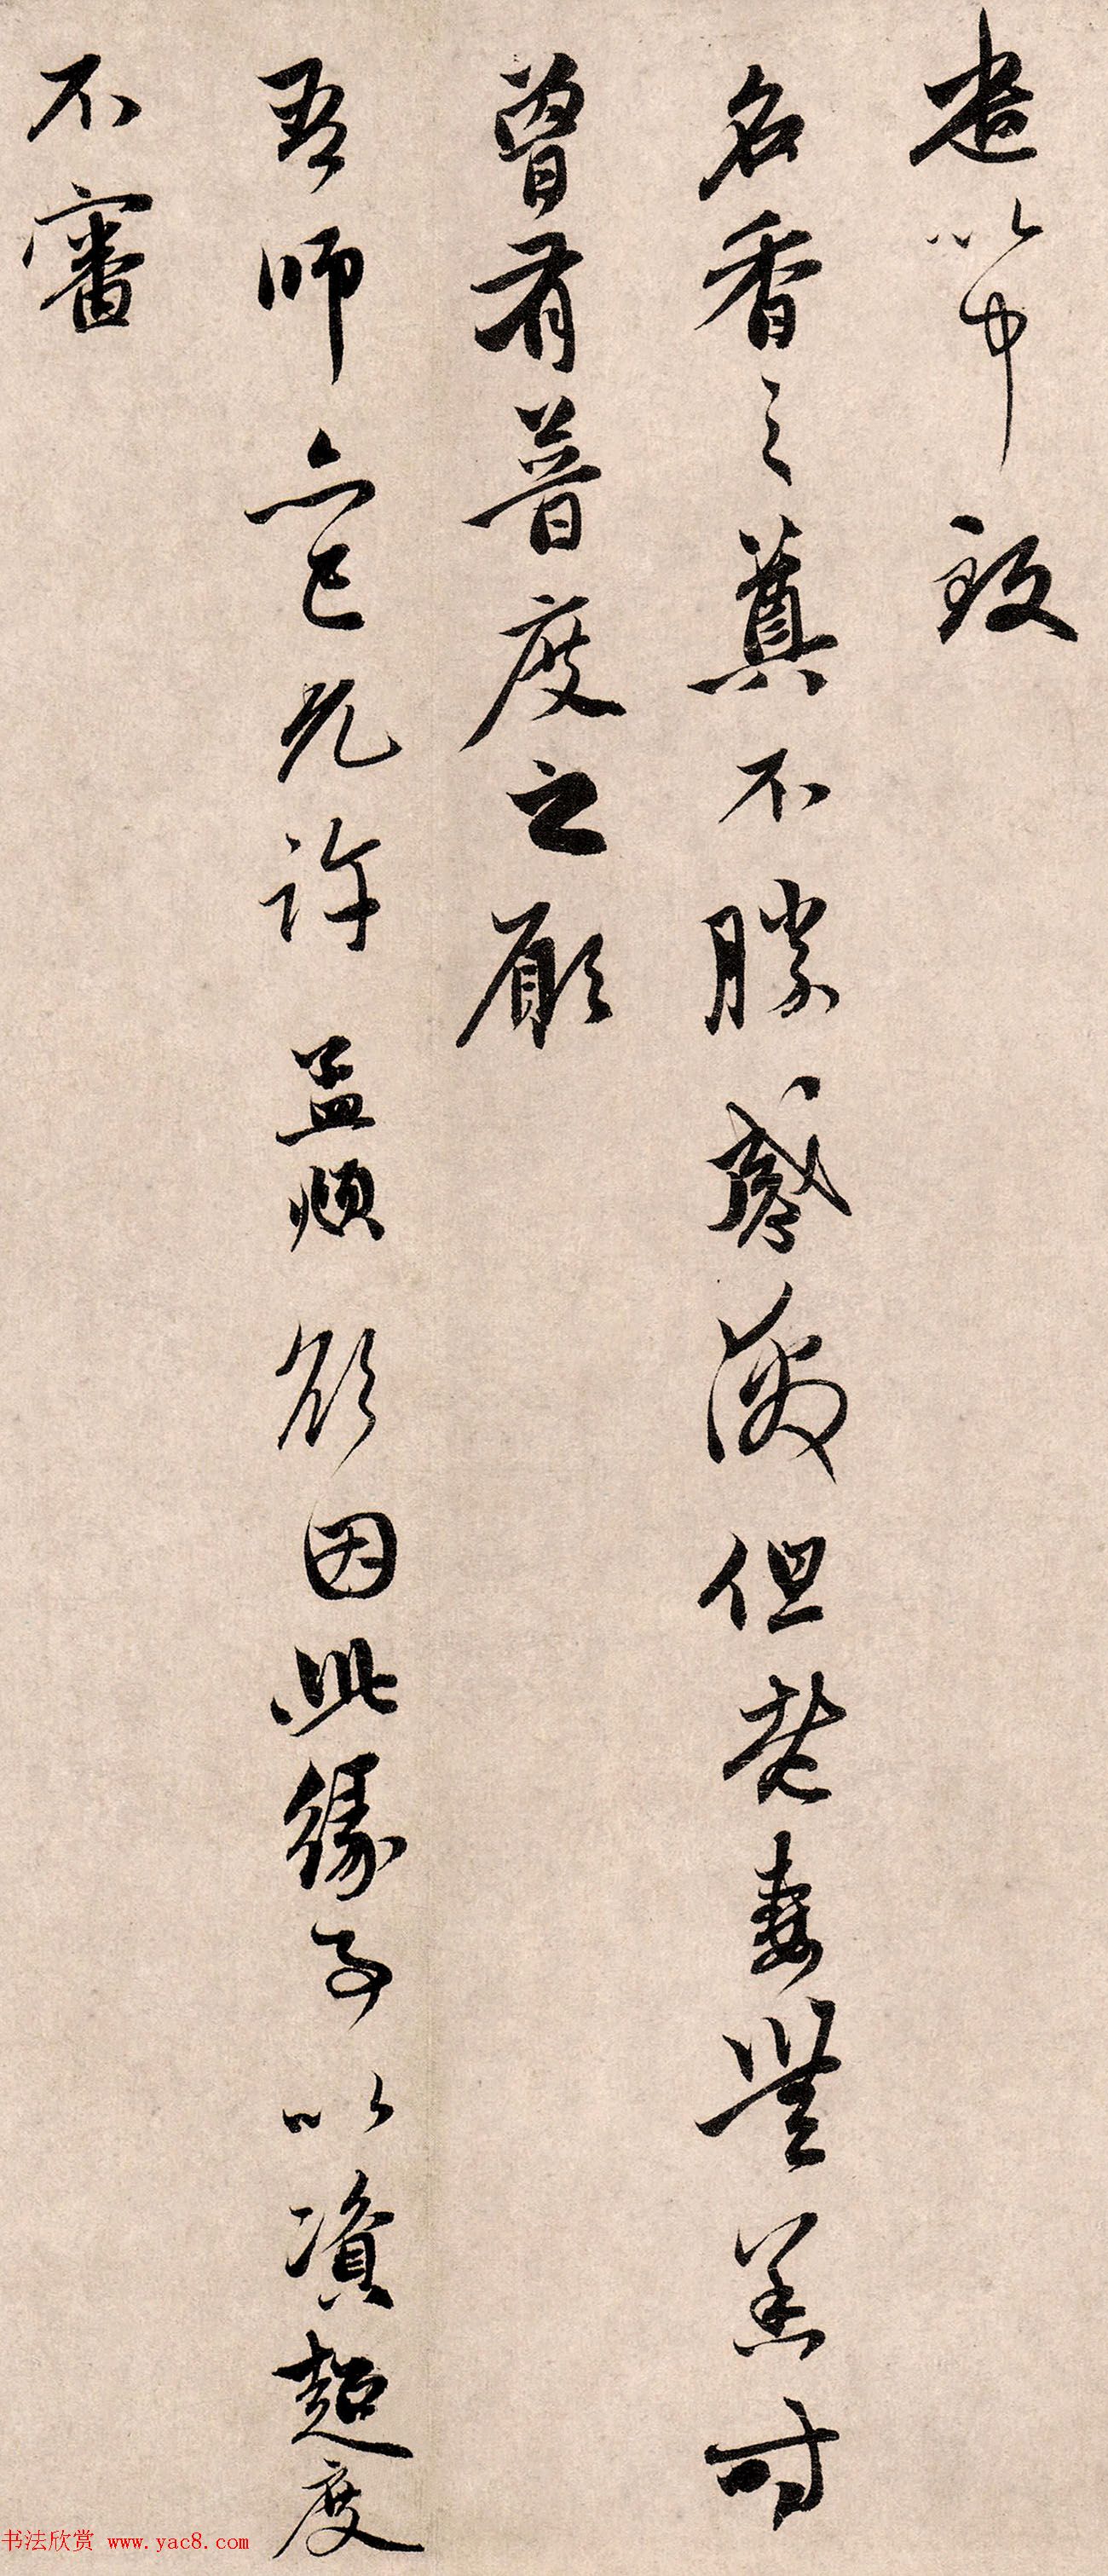 遣以中致
名香之奠不勝感激但老妻無恙時
曾有普度之願
吾師亦已允許孟頫欲因此緣事以資超度
不審
书法欣赏 www.yac8.com